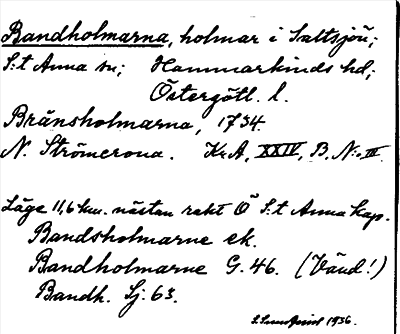 Bandholmarna, holmar i Saltsjön;
S:t Anna sn; Hammarkinds hd;
Östergötl. l.
Bränsholmarna, 1734.
N. Strömcrona. Kr. A, XXIV, B, N:o III.
Läge 11,6 km. nästan rakt Ö S:t Anna kap.
Bandsholmarne ek.
Bandholmarne G. 46. (Vänd!)
Bandh. Sj. 63.
1936.